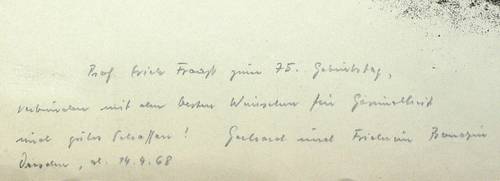 Prof. Erich Fraaß zum 75. Geburtstag,
verbunden mit den besten Wünschen für Gesundheit
und gutes Schaffen! Gerhard und
Dresden, d. 14.4.68